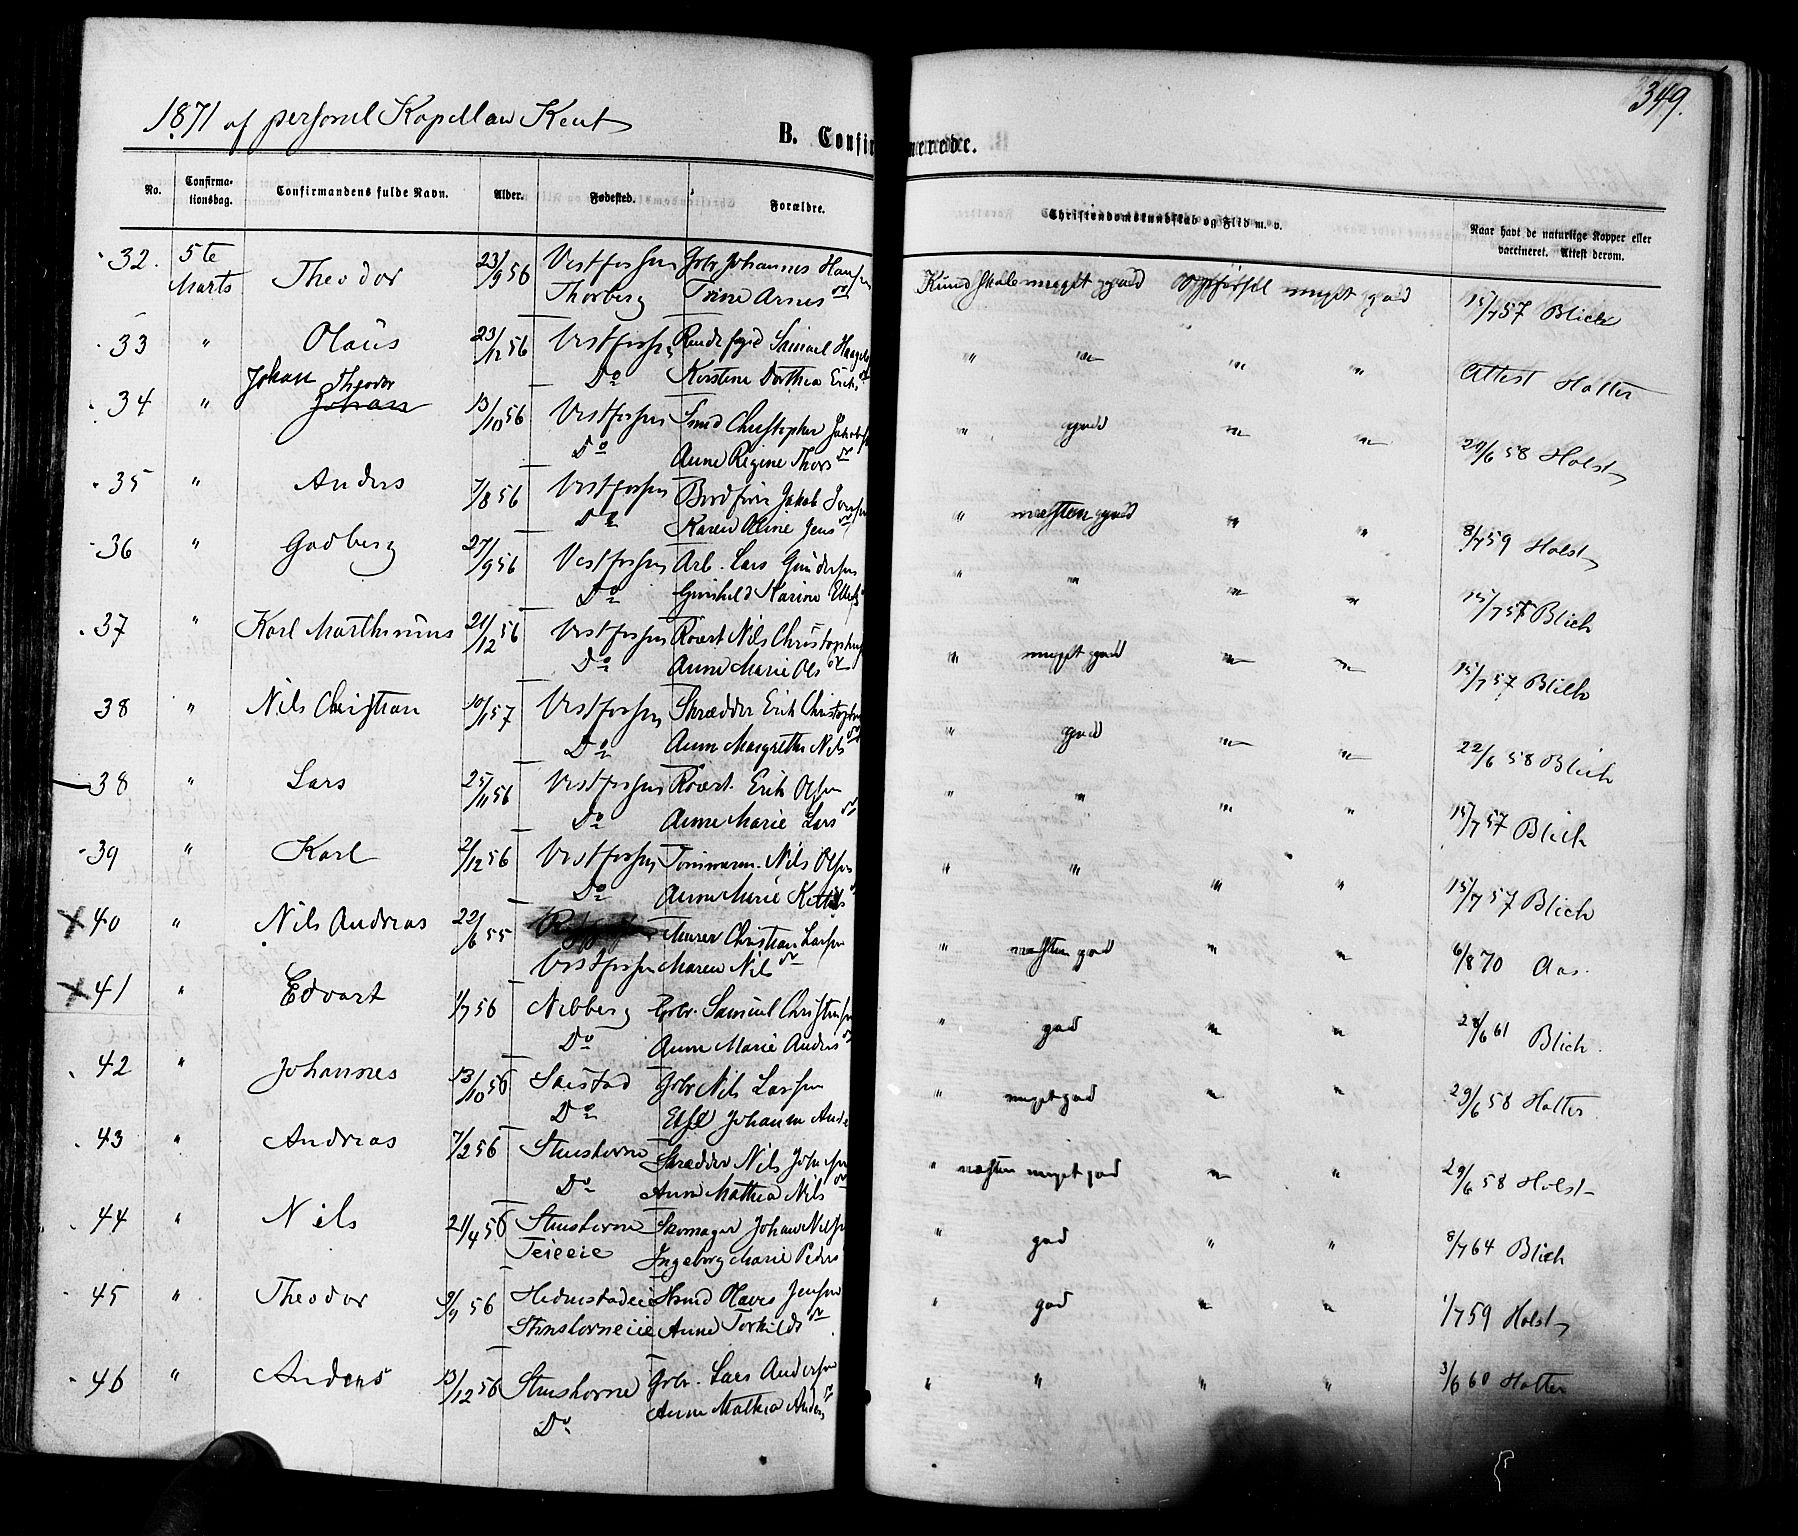 349.
1871 af personel Kapellan Kent
B. Confirmerede.
No. Confirma-tionsdag. Confirmandens fulde Navn. Alder. Fødested. Forældre. Christendomskundskab og Flid m. v. Naar havt de naturlige Kopper eller vaccineret. Attest derom.
32. 5te Theodor 23/9 56 Vestfossen Gbr Johannes Hansen Kundskab meget god Opførsel meget god 15/7 57 Blich
Marts Thorberg Trine Arnes dr
33 " Olaüs 23/12 56 Vestfossen Samuel " " " " Attest Holter
Johan Theodor Do Kerstine Dorthea Erichs
34 " Johan 13/10 56 Vestfossen Smed Christopher Jakobs " god " " 29/6 58 Holst
Do Anne Regine Thors dr
35 " Anders 7/8 56 Vestfossen Jakob " næsten god " " 8/7 59 Holst
Do Karen Oline Jens dr
36 " Godberg 27/9 56 Vestfossen Arb. Lars Gündersen " " " " 15/7 57 Blich
Do Günhild Karine
37 " Karl Marthinius 21/12 56 Vestfossen Nils Christophers " meget god " " 15/7 57 Blich
Do Anne Marie Ols dr
38 " Nils Christian 10/1 57 Vestfossen Skrædder Erik Christophers " god " " 22/6 58 Blich
Do Anne Margrethe Nils dr
38 " Lars 25/11 56 Vestfossen Erik Olsen " " " " 15/7 57 Blich
Do Anne Marie Lars dr
39 " Karl 2/12 56 Vestfossen Tømmerm. Nils Olsen " " " " 15/7 57 Blich
Do Anne Marie
x 40 " Nils Andreas 22/6 55 Murer Christian Larsen " næsten god " " 6/8 70 Aas.
Vestfossen Maren Nils dr
x 41 " Edvart 1/7 56 Nebberg Gbr. Samuel Christensen " god " " 28/6 61 Blich.
Do Anne Marie Anders dr
42 " Johannes 13/10 56 Saestad Gbr Nils Larsen " meget god " " 29/6 58 Holter
Do Else Johanne Ande
43 " Andreas 7/2 56 Stenshorne Skrædder Nils Johnsen " næsten meget god " " 29/6 58 Holst
Do Anne Mathea Nils dr
44 " Nils 21/4 56 Stenshorne Skomager Johan Nilsen " god " " 8/7 64 Blich
Teieeie Ingeborg Marie Peders
45 " Theodor 9/7 56 Hedenstadeie Hmd Olaves Jensen " god " " 1/7 59 Holst
Stenshorneeie Anne Torkilds dr
46 " Anders 13/12 56 Stenshorne Gbr. Lars Andersen " " " " 3/6 60 Holter
Do Anne Mathea Anders dr